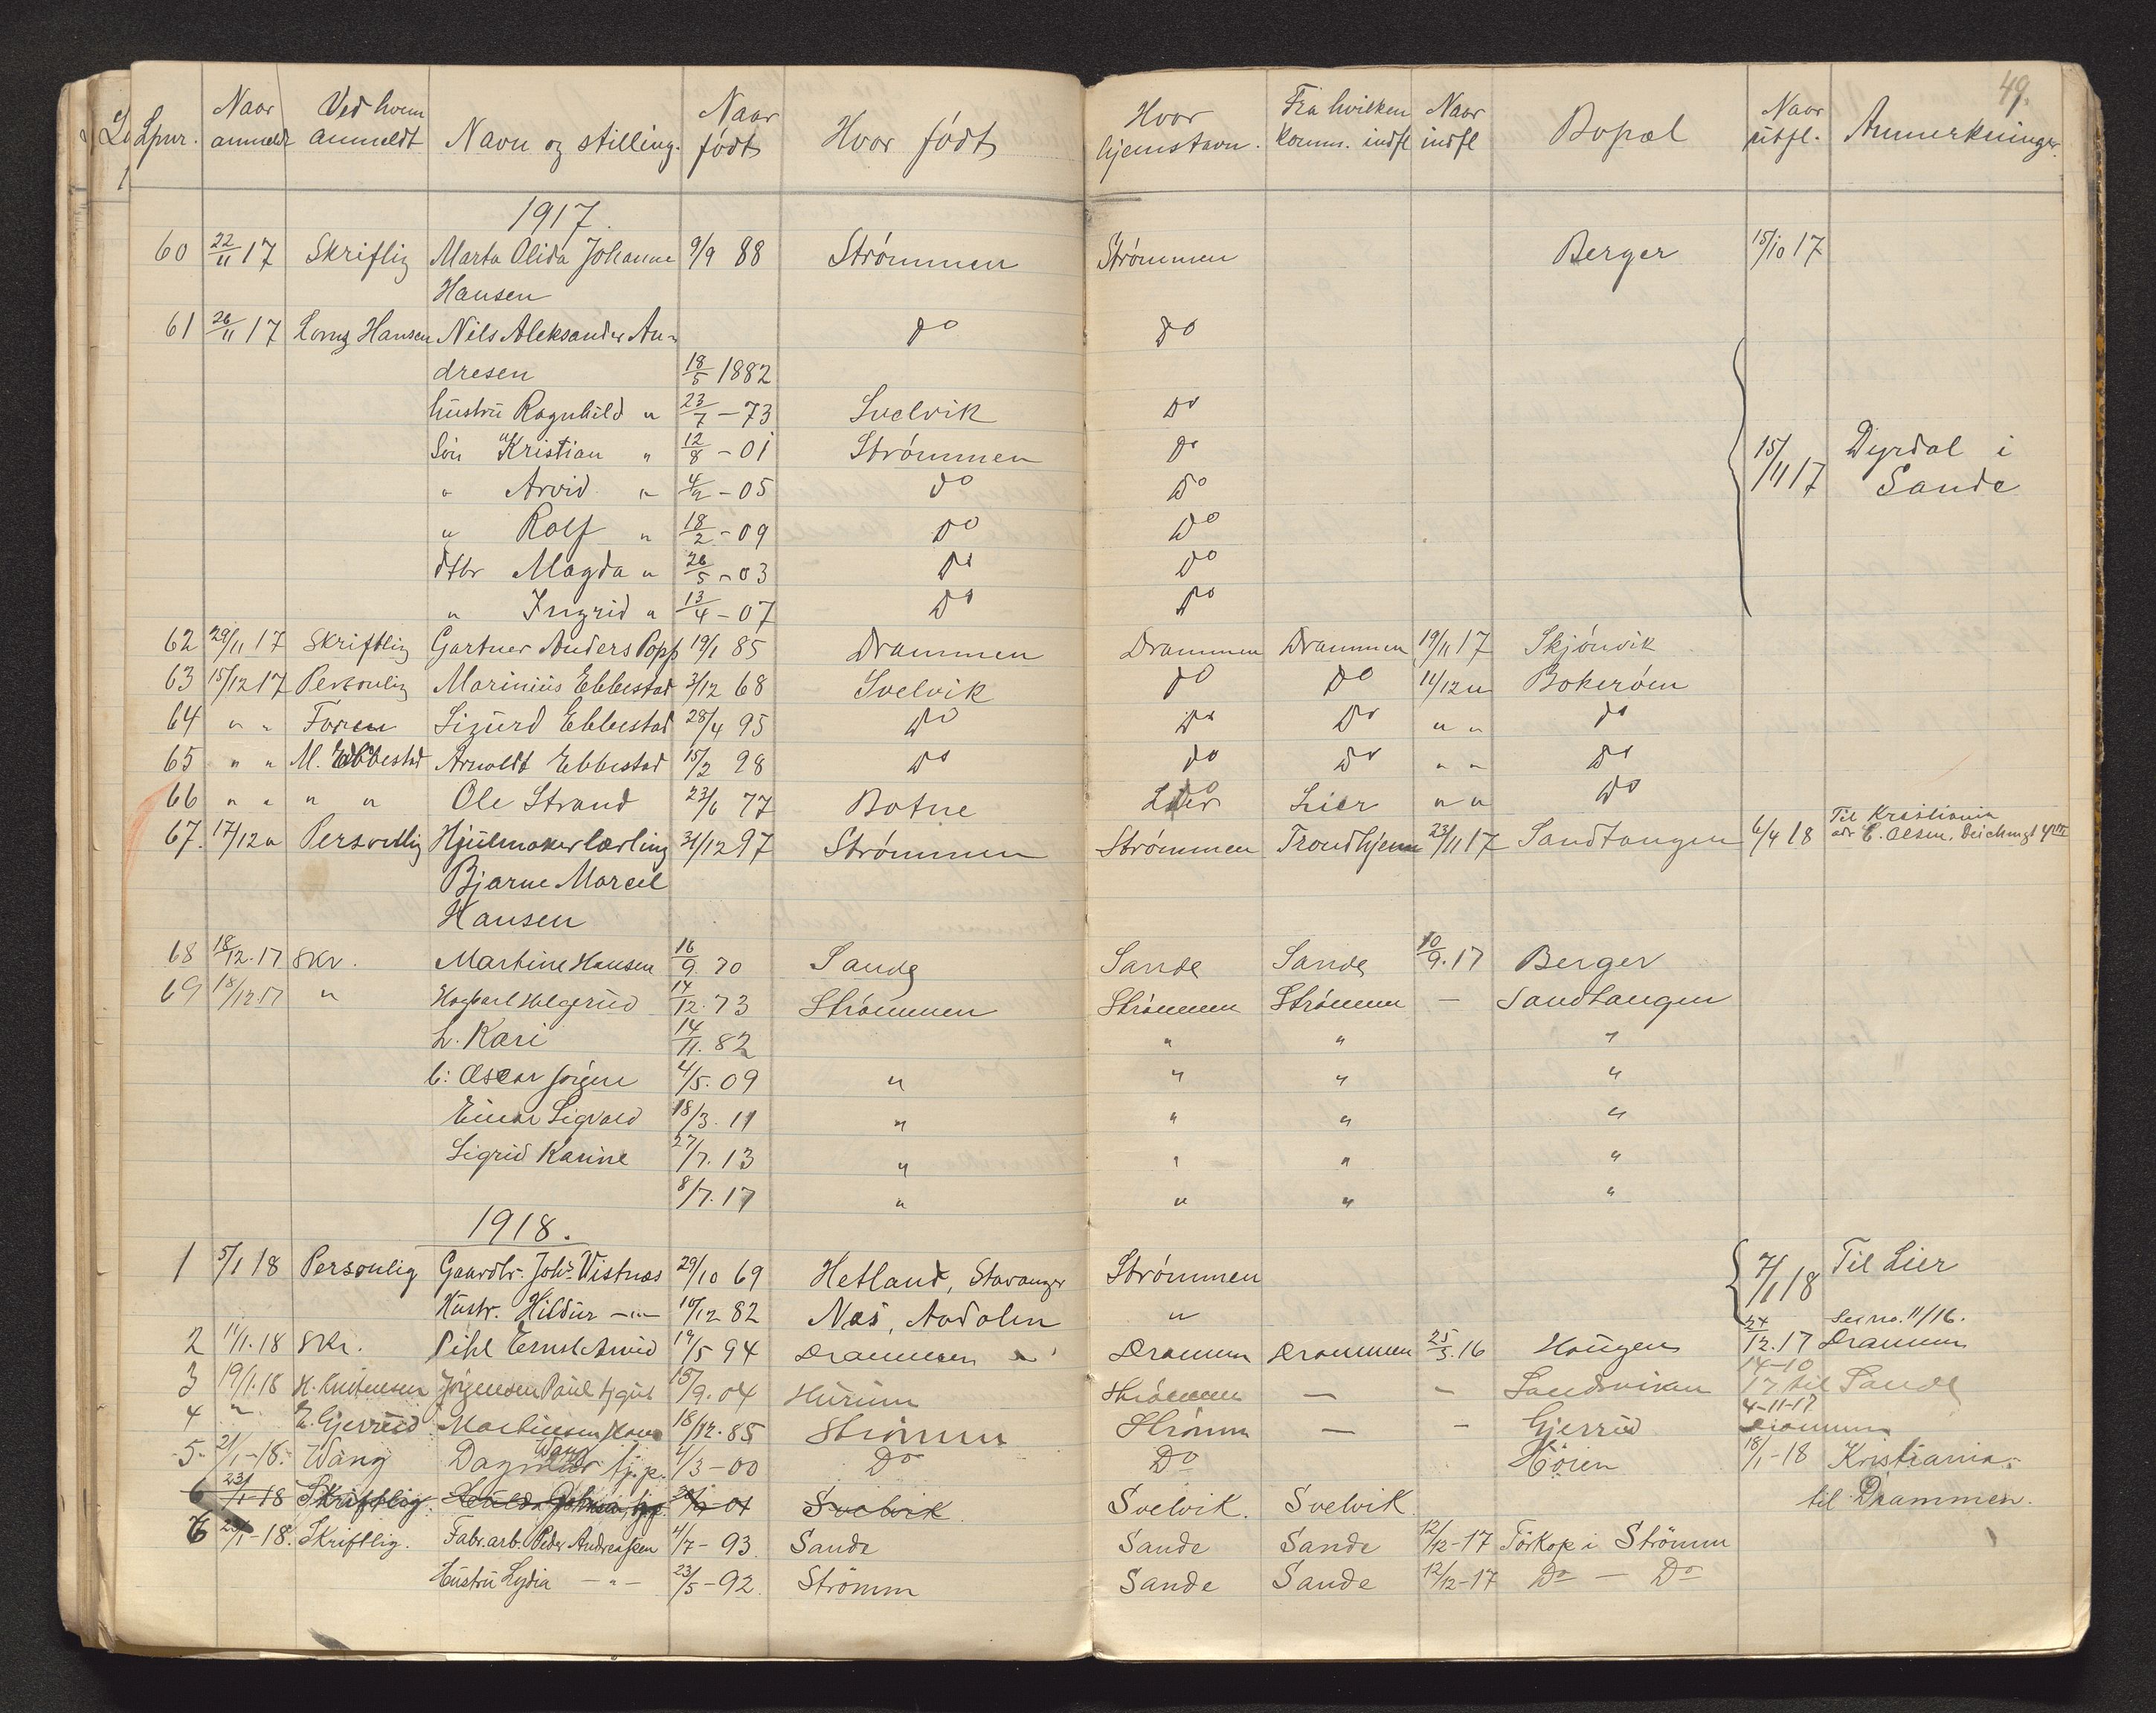 49.
Lpnr. Naar anmeldt Ved hvem anmeldt Navn og stilling. Naar født Hvor født Hvor hjemstavn. Fra hvilken komm. indfl Naar indfl Bopæl Naar utfl. Anmerkninger.
1917.
60 22/11 17 Skriftlig Marta Olida Johanne 9/9 88 Strømmen Strømmen Berger 15/10 17
Hansen
61 26/11 17 Lornz Hansen Nils Aleksander An- do do
dresen 18/5 1882
hustru Ragnhild " 23/7 - 73 Svelvik do
Søn Kristian " 12/8 - 01 Strömmen do 15/11 17 Dyrdal i
" Arvid " 4/2 - 05 do do Sande
" Rolf " 18/2 - 09 do do
dttr Magda " 26/5 - 03 do do
" Ingrid " 13/4 - 07 do do
62 29/11 17 Skriftlig Gartner Anders Popp 19/1 85 Drammen Drammen Drammen 19/11 17 Skjönvik
63 15/12 17 Personlig Marinius Ebbestad 3/12 68 Svelvik do do 11/12 " Bokerøen
64 " " Foren Sigurd Ebbestad 28/4 95 do do do " " do
65 " " M. Ebbestad Arnoldt Ebbestad 15/2 98 do do do " " do
66 " " " " Ole Strand 23/6 77 Botne Lier Lier " " do
67. 17/12 " Personlig Hjulmakerlærling 31/12 97 Strømmen Strømmen Trondhjem 23/11 17 Sandtangen 6/4 18 Til Kristiania
adr. C. Olsen, Deichmgt 4 III
Bjarne Marcel
Hansen
68 18/12.17 Skr. Martine Hansen 16/9. 70 Sande Sande Sande 10/9.17 Berger
69 18/12 17 " Hagbart Holgerud 14/12. 73 Strømmen Strømmen Strømmen — Sandtangen
h. Kari 14/11. 82 " " "
b: Oscar Jörgen 4/5. 09 " " " "
Einar Sigvald 18/3. 11 " " " "
Sigrid Karine 27/7. 13 " " " "
8/7. 17 " " " "
1918.
1 5/1 18 Personlig Gaardbr. Johs. Vistnæs 29/10 69 Hetland, Stavanger Strømmen 7/1 18 Til Lier
Hustr. Hildur —"— 10/12 82 Næs, Aadalen "
Se no. 11/16.
2 11/1.18 Skr. Pihl Ernst Arvid 19/5 94 Drammen Drammen Drammen 25/3.16 Haugen 24/12.17 Drammen
3 19/1.18 H. Kristensen Jörgensen Paul 15/9. 04 Hurum Strömmen — — Sandvikan 14-10 17 til Sande
4 " E. Gjerrud Martinsen 18/12. 85 Strömm Strömm — — Gjerrud 4-11-17 Drammen
5. 21/1-18. Wang Dagmar Wang tj.p. 4/3-00 Do Do Höien 18/1-18 Kristiania.
6 23/1-18 Skriftlig. Svelvik Svelvik. Svelvik til Drammen.
6 23/1-18. Skriftlig. Fabr.arb. Peder Andreassen 4/7- 93. Sande Sande Sande 12/12-17 Törkop i Strömm
Hustru Lydia —"— 23/5-92. Strömm Sande Sande 12/12-17 Do — Do